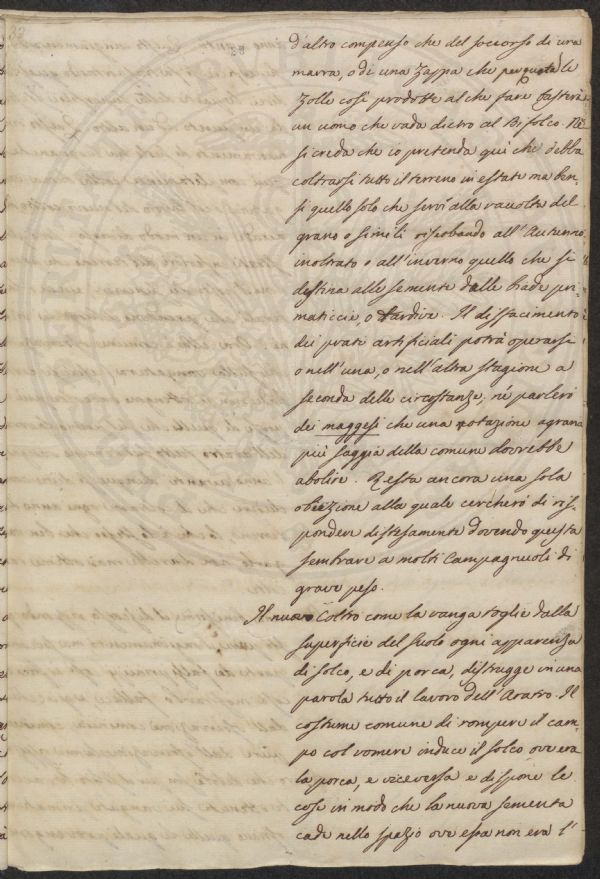 d'altro compenso che del soccorso di una
marra, o di una zappa che per quota le
zolle così prodotte al che fare basterà
un uomo che vada dietro al Bifolco. Nè
si creda che io pretenda quì che debba
coltrarsi tutto il terreno in estate ma ben-
sì quello solo che servì alla raccolta del
grano o simili riserbando all'Autunno
inoltrato o all'inverno quello che si
destina alle semente delle biade pri-
maticcie, o tardive. Il disfacimento
dei prati artificiali potrà operarsi
o nell'una, o nell'altra stagione a
seconda delle circostanze, né parlerò
dei maggesi che una rotazione agraria
più saggia della comune dovrebbe
abolire. Resta ancora una sola
obiezione alla quale cercherò di ris-
pondere distesamente dovendo questa
sembrare a molti Campagnuoli di
grave peso.
Il nuovo Coltro come la vanga toglie dalla
superficie del suolo ogni apparenza
di solco, e di porca, distrugge in una
parola tutto il lavoro dell'Aratro. Il
costume comune di rompere il cam-
po col vomere induce il solco ove era
la porca, e viceversa e dispone le
cose in modo che la nuova sementa
cade nello spazio ove essa non era l'